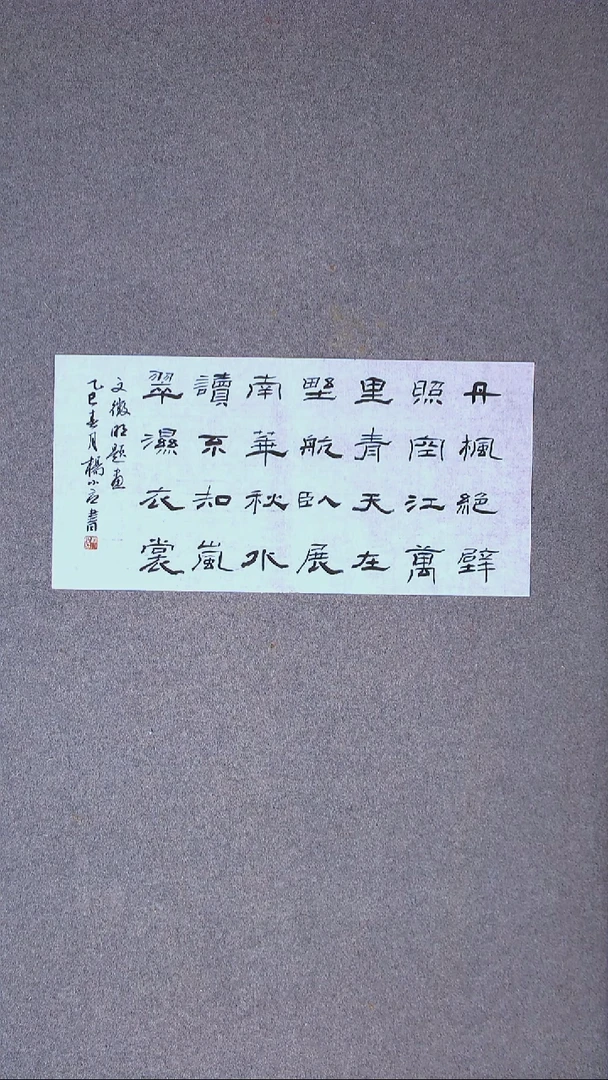 丹楓絕壁
照空江萬
里青天在
野航臥展
南華秋水
讀不知嵐
翠濕衣裳
文徵明題畫
乙巳春月楊小書